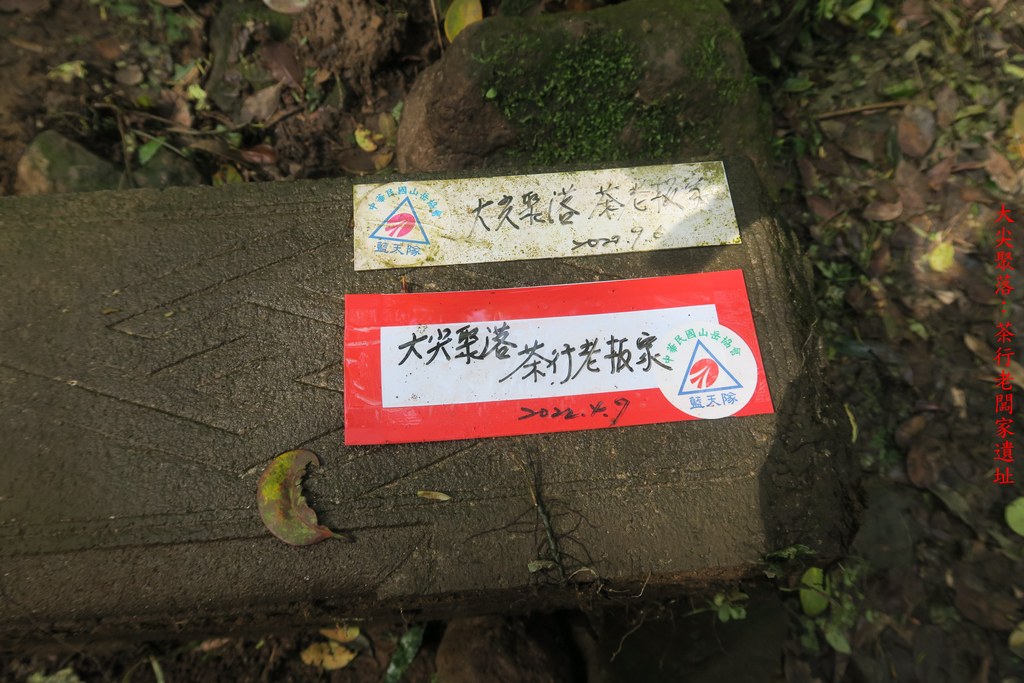 中華民國山岳協會
藍天隊
大尖聚落 茶老板家
大尖聚落 茶行老板家
2022.4.9
中華民國山岳協會
藍天隊
大尖聚落：茶行老闆家遺址